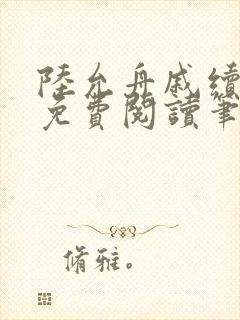 陸允舟戚續
免費閱讀筆
脩雅。